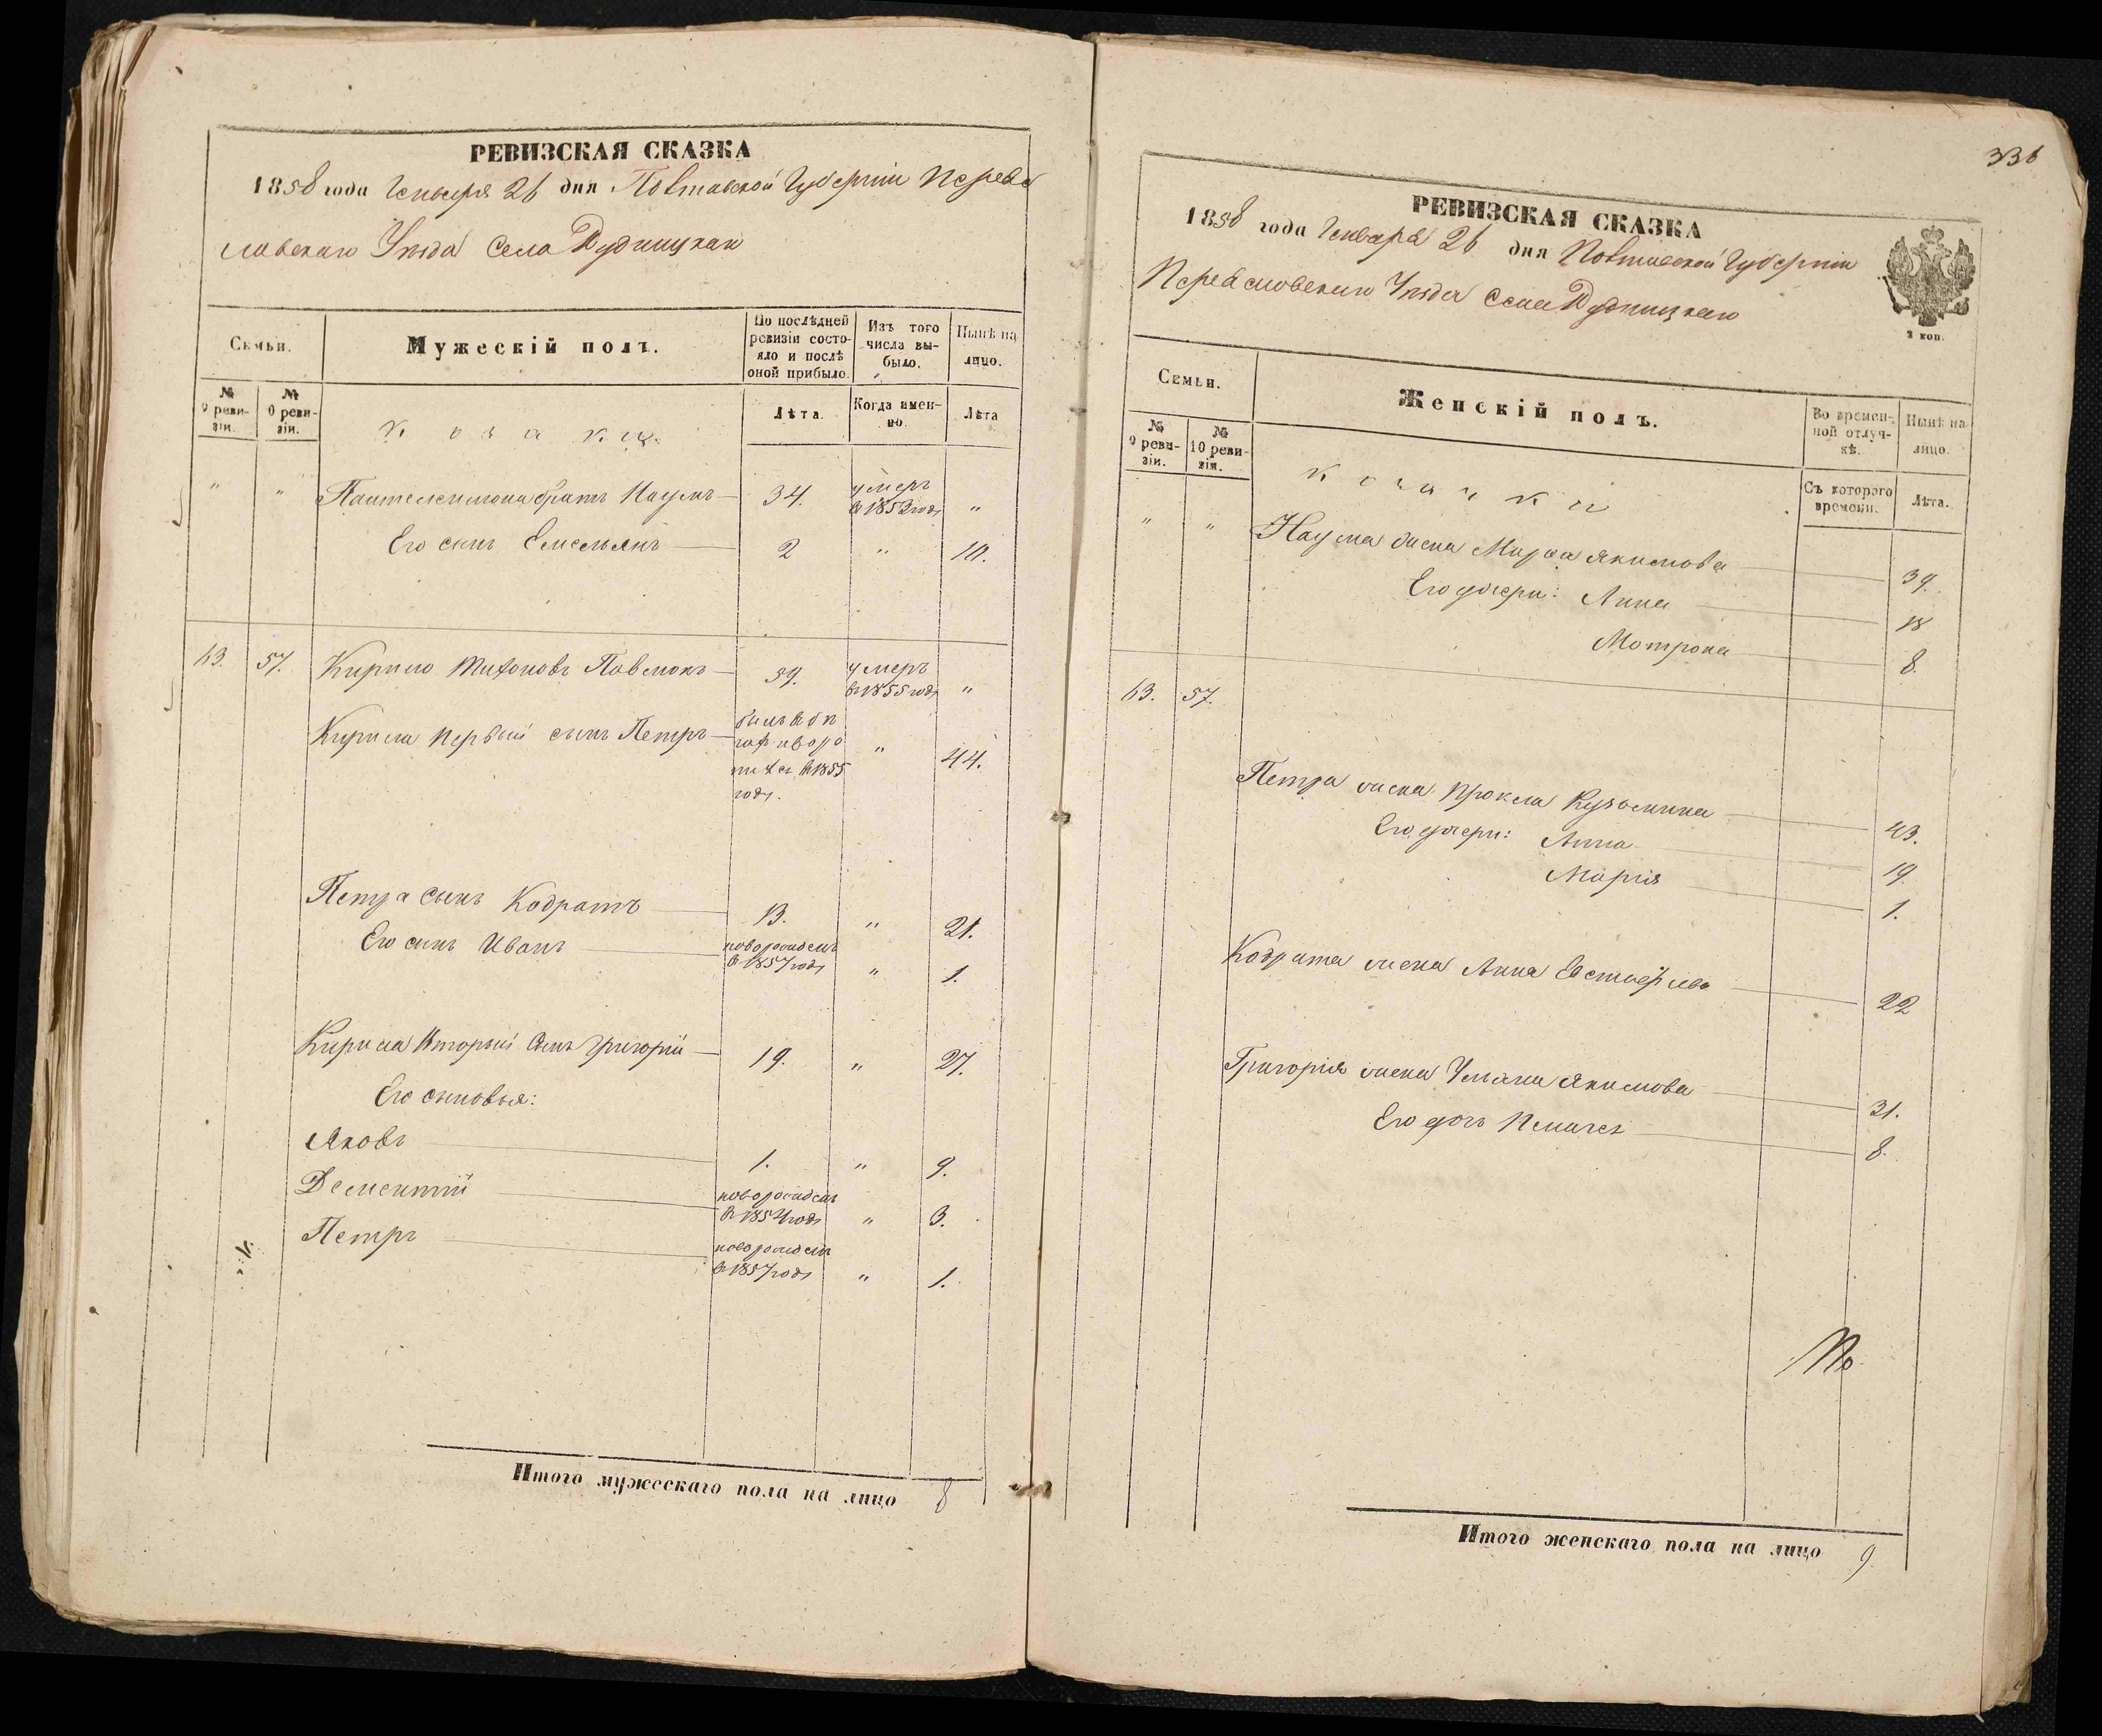 РЕВИЗСКАЯ СКАЗКА
1858 года Генваря 26 дня Полтавской Губерніи Переяс
лавскаго Уѣзда Села Дудницкаго
Семьи.
Мужескій полъ.
По послѣдней ревизіи состояло и послѣ оной прибыло.
Изъ того числа выбыло.
Нынѣ на лицо.
№ 9 ревизіи.
№ 0 ревизіи.
Козаки
Лѣта.
Когда именно.
Лѣта
" " Пантелеимона братъ Наумъ 34. умеръ в 1852 году "
Его сынъ Емельянъ 2 " 10.
63. 57. Кирило Тихоновъ Павлюкъ 59. умеръ в 1855 году "
Кирила первый сынъ Петръ былъ в бѣгахъ и возвратился в 1855 году. " 44.
Петра сынъ Кодратъ 13. " 21.
Его сынъ Иванъ новорожденъ в 1857 году " 1.
Кирила второй сынъ Григорій 19. " 27.
Его сыновья:
Яковъ 1. " 9.
Дементій новорожденъ в 1854 году " 3.
Петръ новорожденъ в 1857 году " 1.
Итого мужескаго пола на лицо 8
336
РЕВИЗСКАЯ СКАЗКА
1858 года Генваря 26 дня Полтавской Губерніи
Переяславскаго Уѣзда Села Дудницкаго
2 коп.
Семьи.
Женскій полъ.
Во временной отлучкѣ.
Нынѣ на лицо.
№ 9 ревизіи.
№ 10 ревизіи.
Козачки
Съ котораго времени.
Лѣта.
" " Наума жена Марфа Якимова 39.
Его дочери: Анна 18
Мотрона 8.
63. 57.
Петра жена Прокла Кузьмина 43.
Его дочери: Анна 19.
Марія 1.
Кодрата жена Анна Евстафіева 22
Григорія жена Ульяна Якимова 31.
Его дочь 8.
Итого женскаго пола на лицо 9